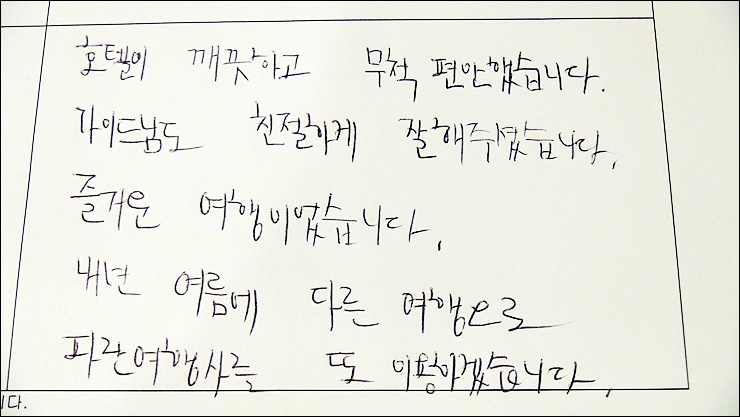 호텔이 깨끗하고 무척 편안했습니다.
가이드님도 친절하게 잘해주셨습니다.
즐거운 여행이었습니다.
내년 여름에 다른 여행으로
파란여행사를 또 이용하겠습니다.
니다.